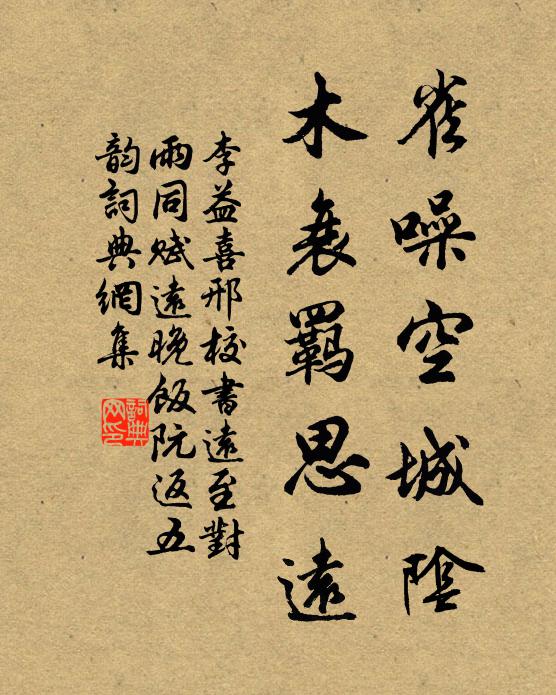 雀噪空城陰
木衰羁思遠
李益喜邢校書遠至對
雨同賦遠晚飯阮返五
韵詞典網集
詞典
网印